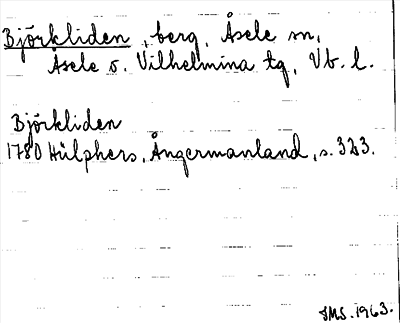 Björkliden, berg, Åsele sn,
Åsele o. Vilhelmina tg, Vb. l.
Björkliden
1780 Hülphers, Ångermanland, s. 323.
SMS. 1963.